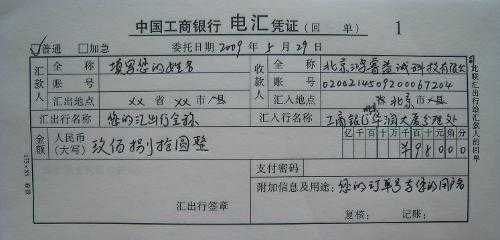 中国工商银行 电汇凭证(回 单) 1
普通 加急 委托日期 2009 年 5 月 29 日
汇款人 全 称 填写您的姓名 收款人 全 称
账 号 账 号 0200214509200067204
汇出地点 xx 省 xx 市/县 汇入地点 北京 市/县
汇出行名称 您的汇出行全称 汇入行名称 工商银行 华润大厦分理处
金额 人民币(大写) 玖佰捌拾圆整 亿 千 百 十 万 千 百 十 元 角 分
¥ 9 8 0 0 0
支付密码
附加信息及用途: 您的订单号与您的用户名
汇出行签章 复核: 记账: